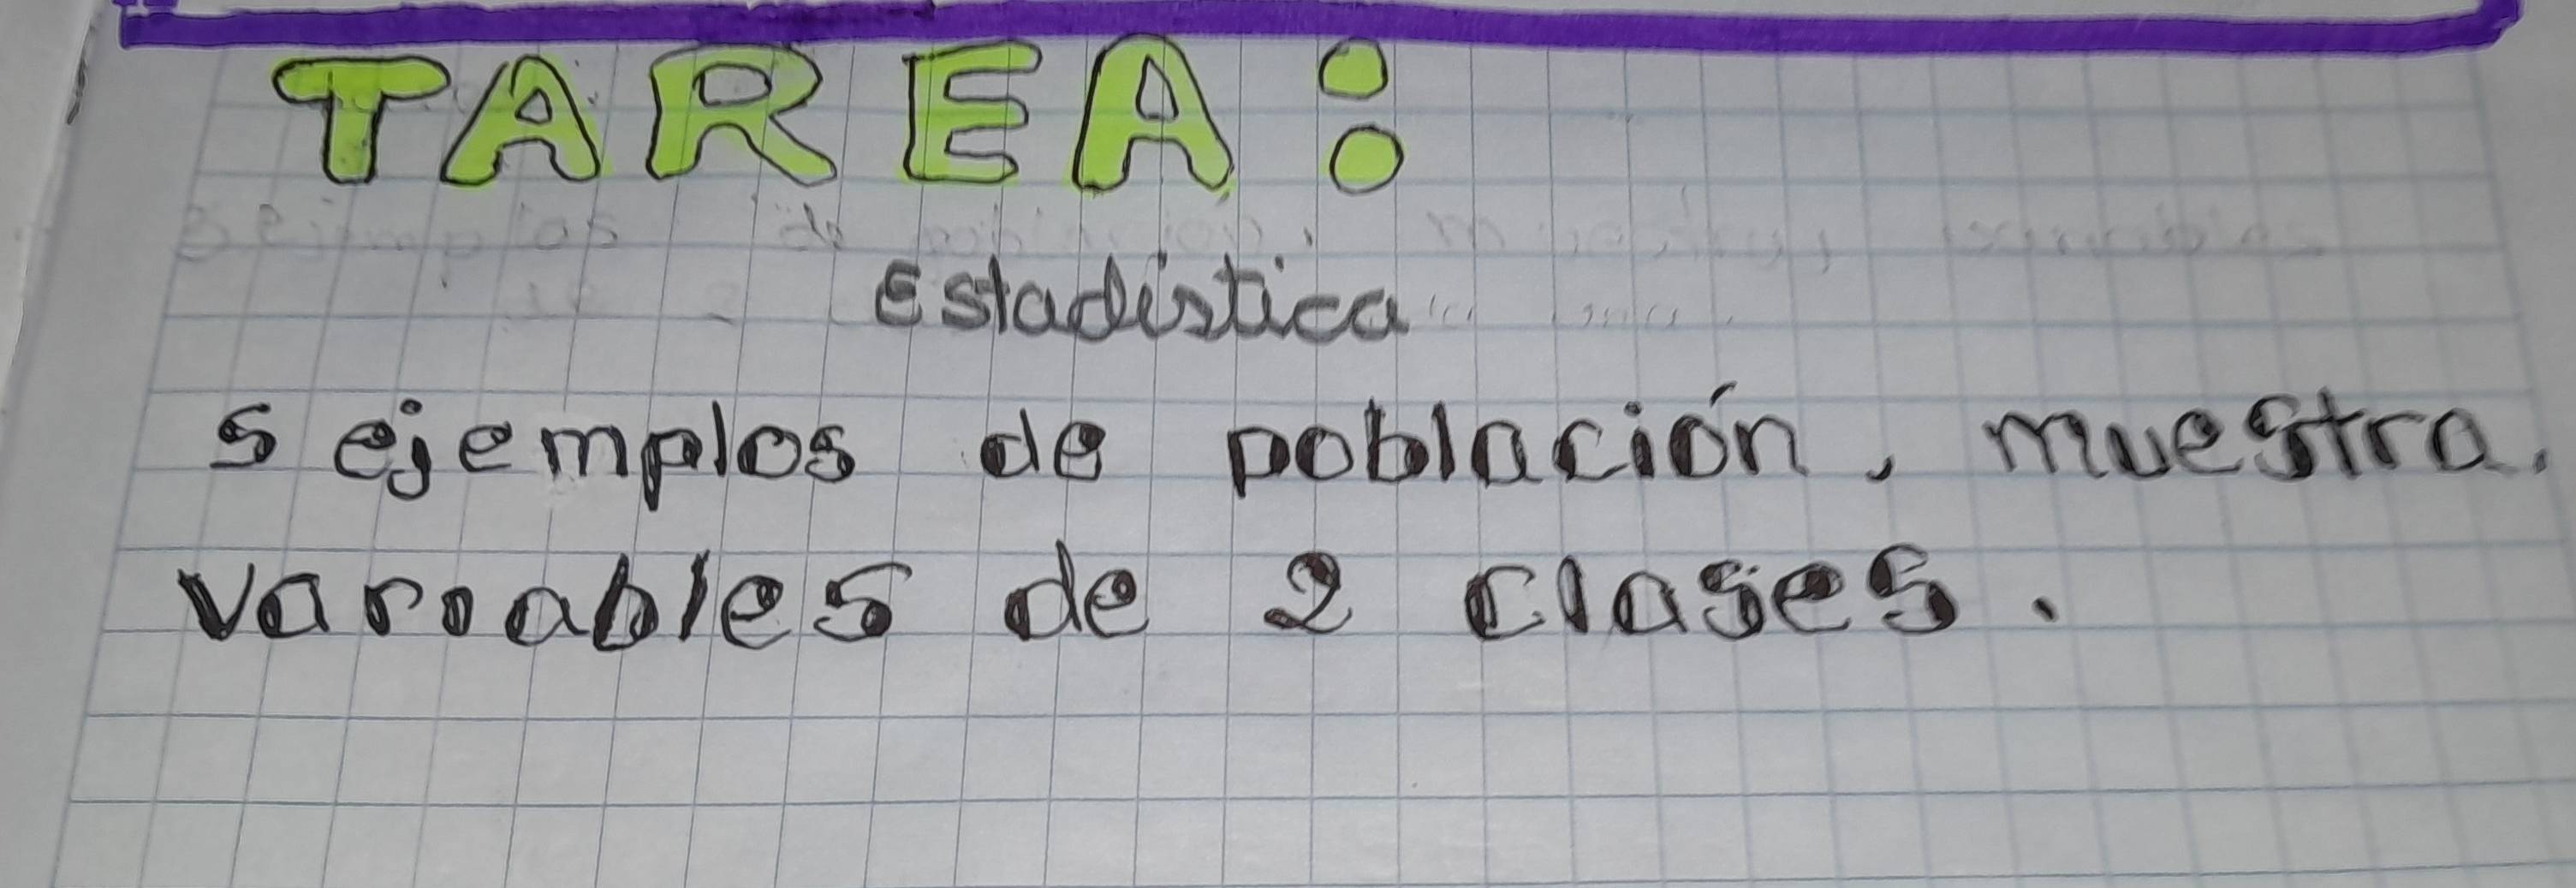 TAREA:
Estadística
5 ejemplos de población, muestra,
variables de 2 clases.